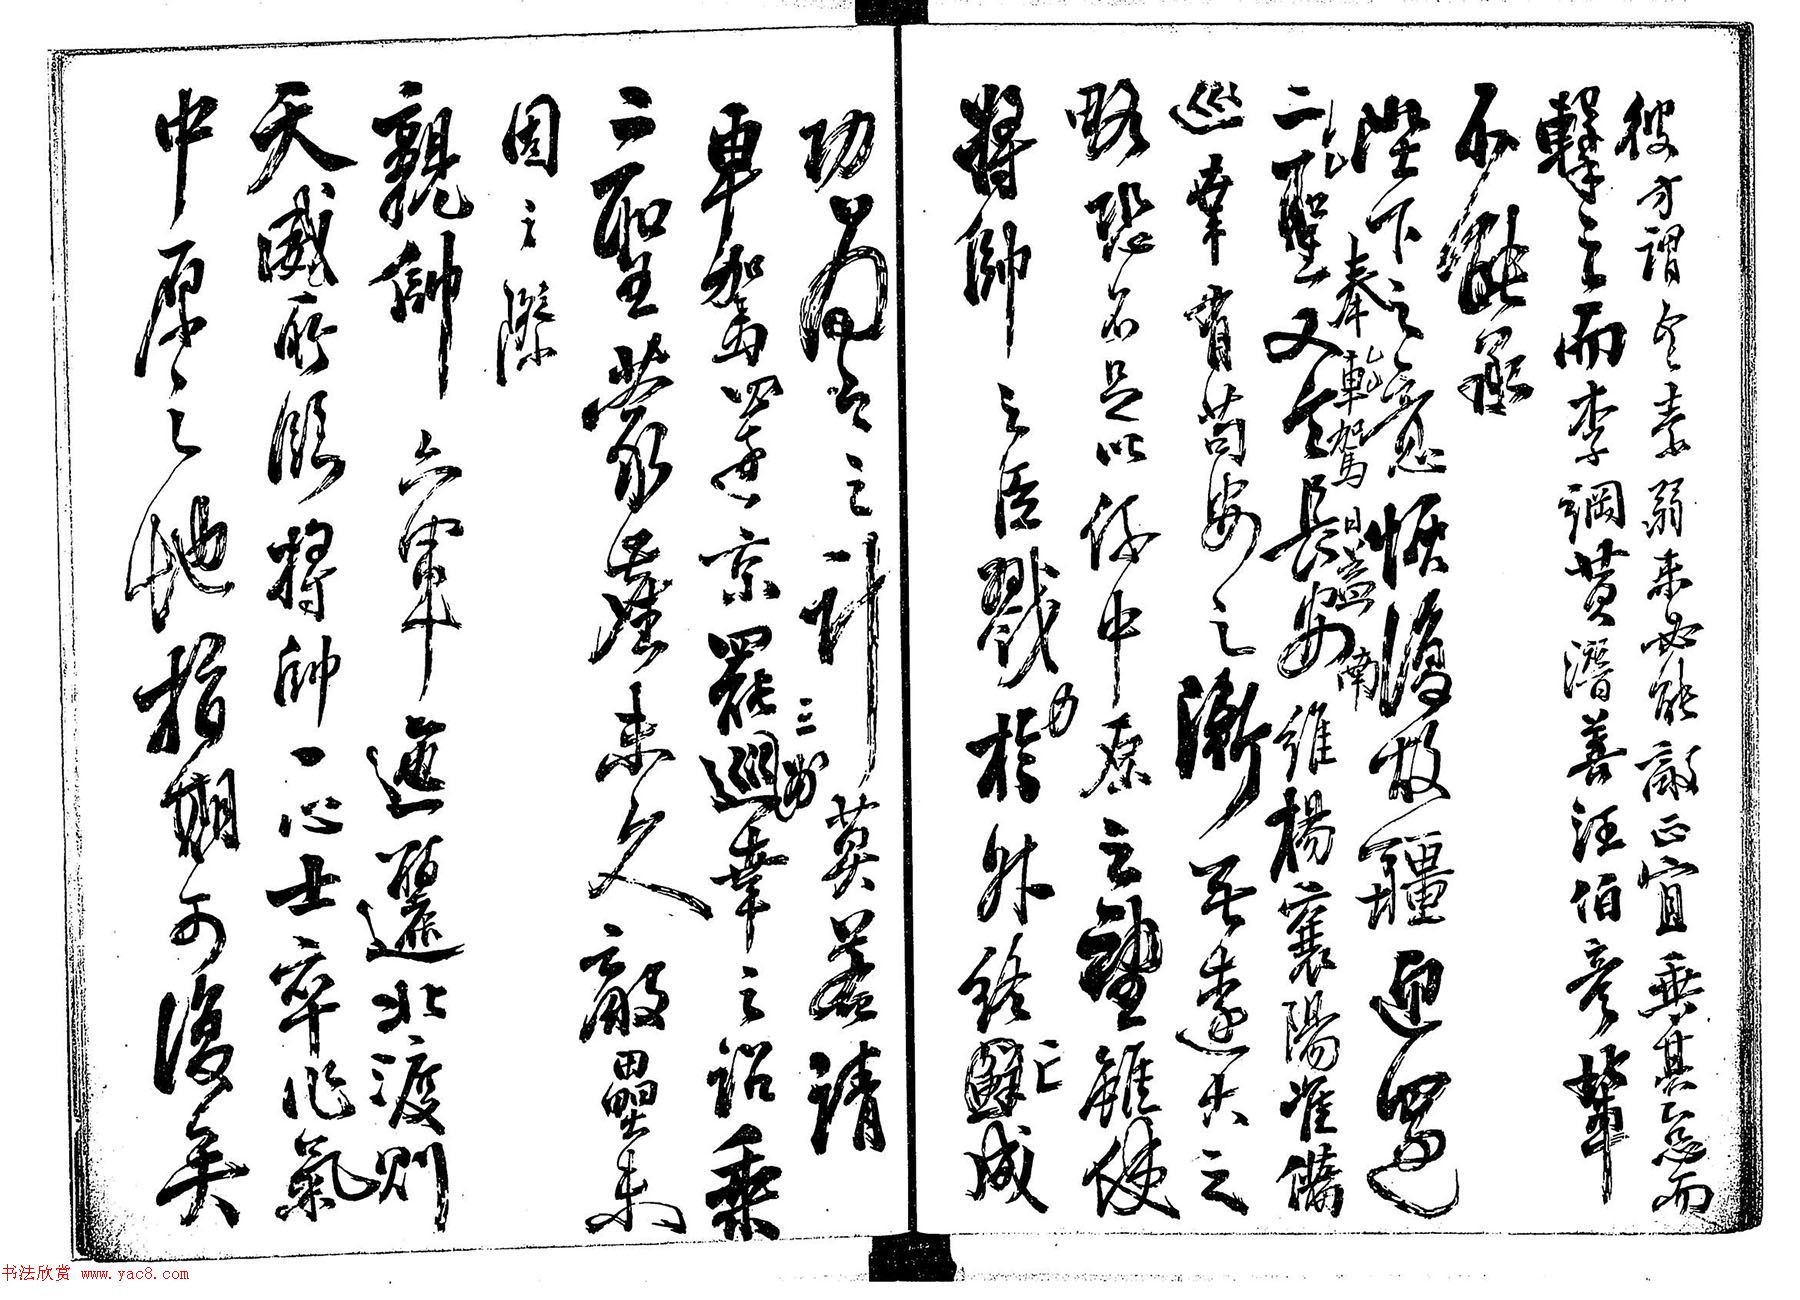 彼方謂吾素弱未必能敵正宜乘其怠而
擊之而李綱黃潛善汪伯彥輩
不能承
陛下之意恢復故疆迎還
二聖奉車駕日益南
又令長安維揚襄陽准備
巡幸有苟安之漸無遠大之
略恐不足以係中原之望雖使
將帥之臣戮力於外終亡成
功為今之計莫若請
車駕還京罷三州巡幸之詔乘
二聖蒙塵未久虜壘未
固之際
親帥六軍迤邐北渡則
天威所臨將帥一心士卒作氣
中原之地指期可復矣
书法欣赏 www.yac8.com